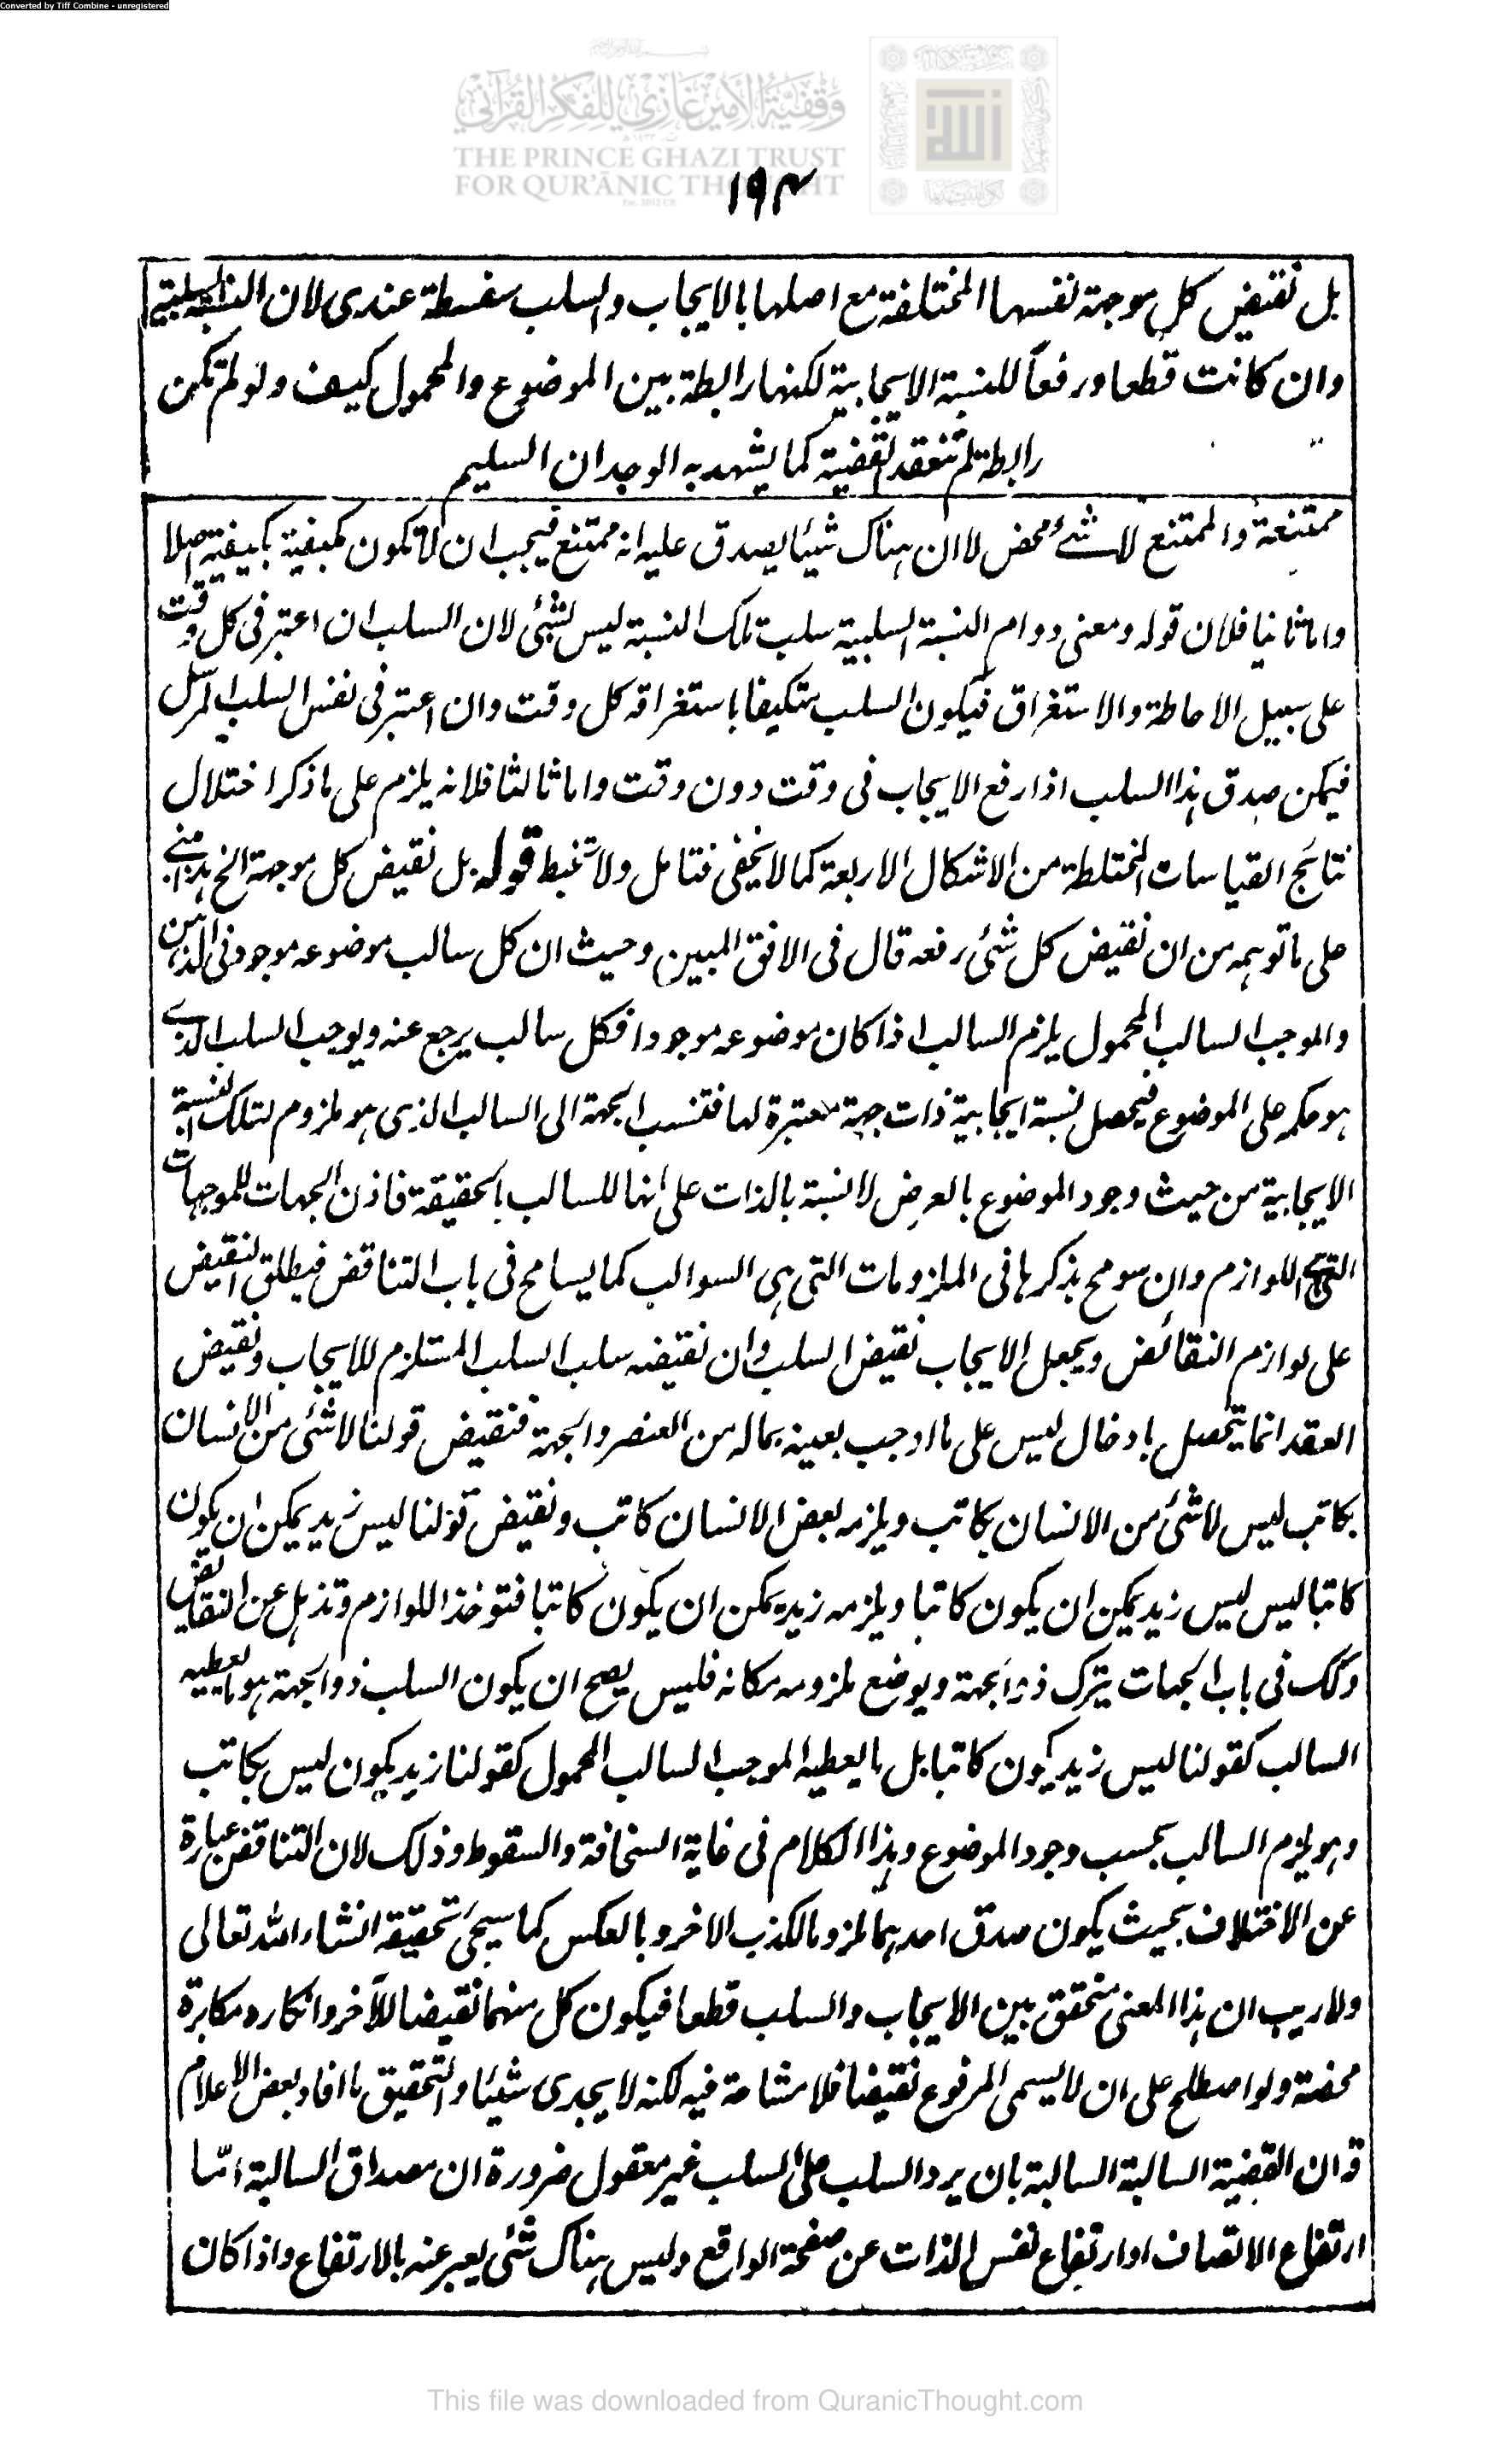 Converted by Tiff Combine - unregistered
وقفية الأمير غازي للفكر القرآني
THE PRINCE GHAZI TRUST
FOR QUR'ĀNIC THOUGHT
١٩٤
بل نقيض كل موجهة نفسها المختلفة مع اصلها بالايجاب والسلب سفسطة عندى لان النسبة السلبية
وان كانت قطعا ورفعاً للنسبة الايجابية لكنها رابطة بين الموضوع والمحمول كيف ولو لم تكن
رابطة لم تنعقد القضية كما يشهد به الوجدان السليم
ممتنعة والممتنع لا شئ محض لا ان هناك شيئا يصدق عليه انه ممتنع فيجب ان لا تكون مكيفية بكيفية اصلا
واما ثانيا فلان قوله ومعنى دوام النسبة السلبية سلب تلك النسبة ليس بشئ لان السلب ان اعتبر فى كل وقت
على سبيل الاحاطة والاستغراق فيكون السلب متكيفا باستغراقه كل وقت وان اعتبر فى نفس السلب المرسل
فيمكن صدق هذا السلب اذا رفع الايجاب فى وقت دون وقت واما ثالثا فلانه يلزم على ما ذكر اختلال
نتائج القياسات المختلطة من الاشكال الاربعة كما لا يخفى فتامل ولا تخبط قوله بل نقيض كل موجهة الخ هذا مبنى
على ما توهمه من ان نقيض كل شئ رفعه قال فى الافق المبين وحيث ان كل سالب موضوعه موجود فى الذهن
والموجب السالب المحمول يلزم السالب اذا كان موضوعه موجودا فكل سالب يرجع عنه ويوجب السلب الذى
هو حكمه على الموضوع فيحصل نسبة ايجابية ذات جهة معتبرة لها فتنسب الجهة الى السالب الذى هو ملزوم لتلك النسبة
الايجابية من حيث وجود الموضوع بالعرض لا نسبة بالذات على انها للسالب بالحقيقة فاذن الجهات للموجبات
التى هى اللوازم وان سومح بذكرها فى الملزومات التى هى السوالب كما يسامح فى باب التناقض فيطلق النقيض
على لوازم النقائض ويجعل الايجاب نقيض السلب وان نقيضه سلب السلب المستلزم للايجاب ونقيض
العقد انما يتحصل بادخال ليس على ما اوجب بعينه بما له من العنصر والجهة فنقيض قولنا لا شئ من الانسان
بكاتب ليس لا شئ من الانسان بكاتب ويلزمه بعض الانسان كاتب ونقيض قولنا ليس زيد يمكن ان يكون
كاتبا ليس ليس زيد يمكن ان يكون كاتبا ويلزمه زيد يمكن ان يكون كاتبا فتوخذ اللوازم وتذهل عن النقائض
وكك فى باب الجهات يترك ذو الجهة ويوضع ملزومه مكانه فليس يصح ان يكون السلب ذو الجهة هو ما يعطيه
السالب كقولنا ليس زيد يكون كاتبا بل ما يعطيه الموجب السالب المحمول كقولنا زيد يكون ليس بكاتب
وهو يلزم السالب بحسب وجود الموضوع وهذا الكلام فى غاية السخافة والسقوط وذلك لان التناقض عبارة
عن الاختلاف بحيث يكون صدق احدهما ملزوما لكذب الاخر وبالعكس كما سيجئ تحقيقه انشاء الله تعالى
ولا ريب ان هذا المعنى متحقق بين الايجاب والسلب قطعا فيكون كل منهما نقيضا للآخر وانكاره مكابرة
محضة ولو اصطلح على ان لا يسمى المرفوع نقيضا فلا مشاحة فيه لكنه لا يجدى شيئا والتحقيق ما افاد بعض الاعلام
قه ان القضية السالبة السالبة بان يرد السلب على السلب غير معقول ضرورة ان مصداق السالبة اما
ارتفاع الاتصاف او ارتفاع نفس الذات عن صفحة الواقع وليس هناك شئ يعبر عنه بالارتفاع واذا كان
This file was downloaded from QuranicThought.com